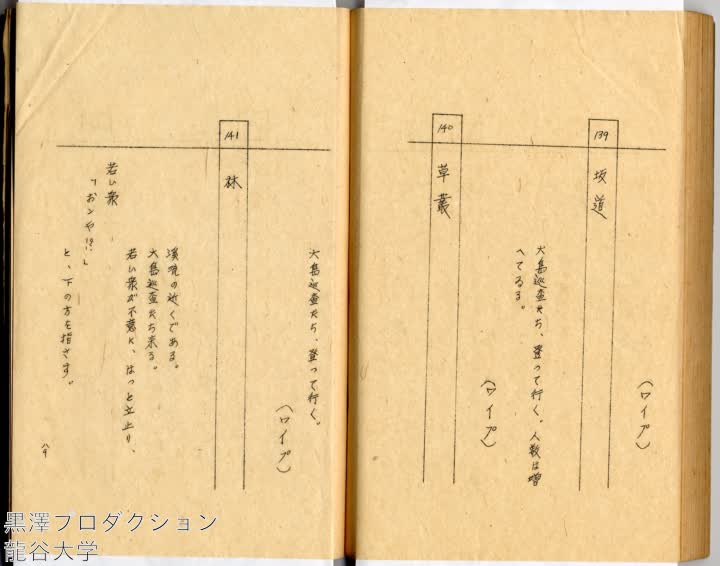 （ワイプ）
139
坂道
大島巡査たち、登って行く。人数は増
へてゐる。
（ワイプ）
140
草叢
大島巡査たち、登って行く。
（ワイプ）
141
林
渓流の近くである。
大島巡査たち来る。
若い衆が不意に、はっと立止り、
若い衆
「おンや
と、下の方を指さす。
八九
黒澤プロダクション
龍谷大学